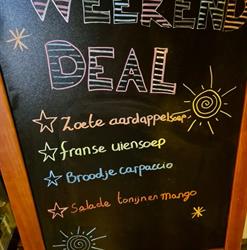 WEEKEND
DEAL
Zoete aardappelsoep
franse uiensoep
Broodje carpaccio
Salade tonijn en mango